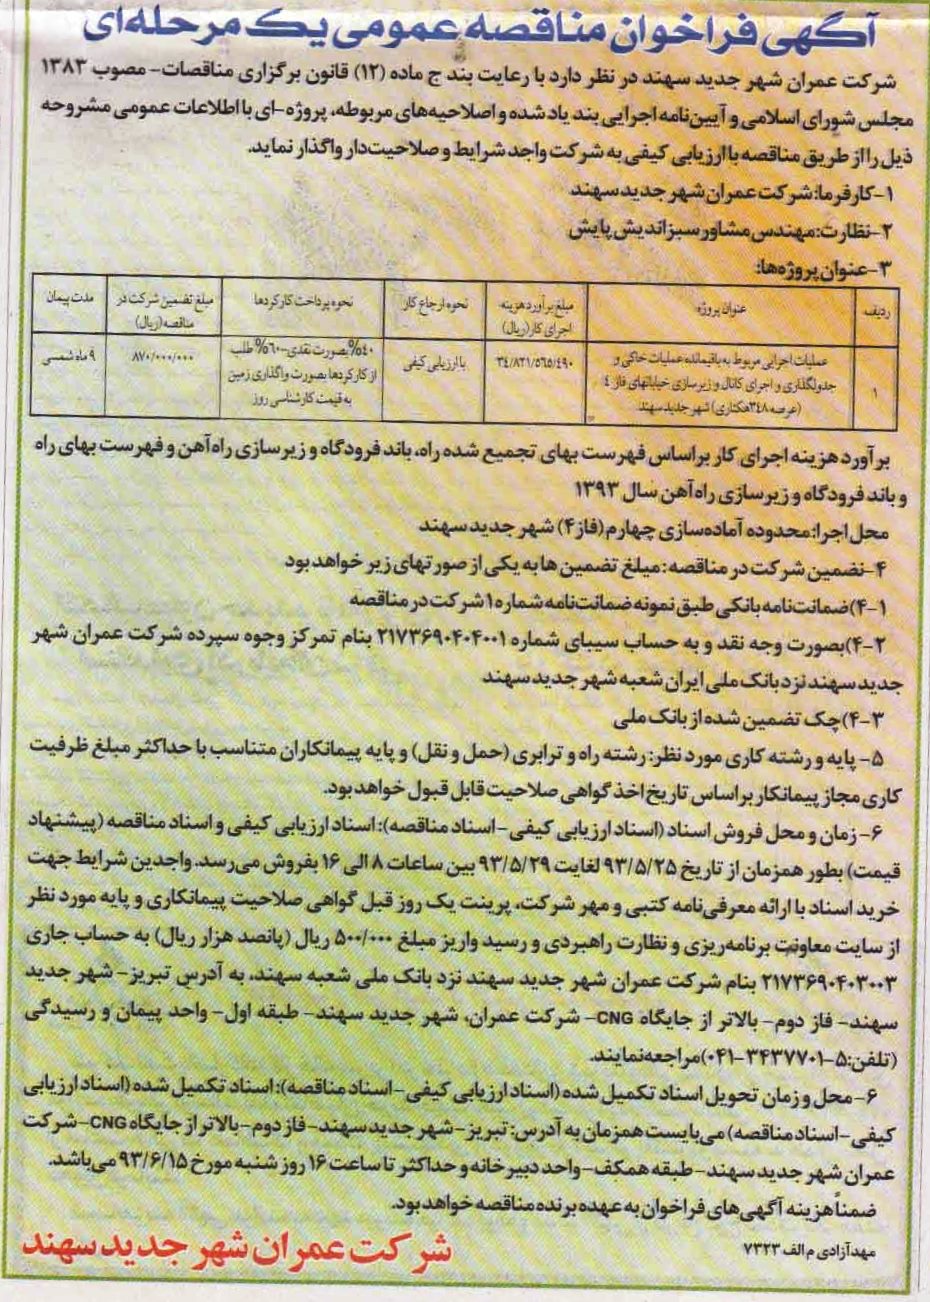 آگهی فراخوان مناقصه عمومی یک مرحله‌ای
شرکت عمران شهر جدید سهند در نظر دارد با رعایت بند ج ماده (۱۲) قانون برگزاری مناقصات- مصوب ۱۳۸۳
مجلس شورای اسلامی و آیین‌نامه اجرایی بند یاد شده و اصلاحیه‌های مربوطه، پروژه-ای با اطلاعات عمومی مشروحه
ذیل را از طریق مناقصه با ارزیابی کیفی به شرکت واجد شرایط و صلاحیت‌دار واگذار نماید.
۱-کارفرما: شرکت عمران شهر جدید سهند
۲-نظارت: مهندس مشاور سبز اندیش پایش
۳-عنوان پروژه‌ها:
ردیف عنوان پروژه مبلغ برآورد هزینه اجرای کار (ریال) نحوه ارجاع کار نحوه پرداخت کارکردها مبلغ تضمین شرکت در مناقصه (ریال) مدت پیمان
۱ عملیات اجرایی مربوط به باقیمانده عملیات خاکی و جدولگذاری و اجرای کانال و زیرسازی خیابانهای فاز ٤ (عرصه ۳٤۸هکتاری) شهر جدید سهند ۳٤/۸۲۱/۵٦۵/٤۹۰ با ارزیابی کیفی ٤۰% بصورت نقدی-٦۰% طلب از کارکردها بصورت واگذاری زمین به قیمت کارشناسی روز ۸۷۰/۰۰۰/۰۰۰ ۹ ماه شمسی
برآورد هزینه اجرای کار براساس فهرست بهای تجمیع شده راه، باند فرودگاه و زیرسازی راه‌آهن و فهرست بهای راه
و باند فرودگاه و زیرسازی راه‌آهن سال ۱۳۹۳
محل اجرا: محدوده آماده‌سازی چهارم (فاز۴) شهر جدید سهند
۴-تضمین شرکت در مناقصه: مبلغ تضمین ها به یکی از صورتهای زیر خواهد بود
۴-۱)ضمانت‌نامه بانکی طبق نمونه ضمانت‌نامه شماره ۱ شرکت در مناقصه
۴-۲)بصورت وجه نقد و به حساب سیبای شماره ۲۱۷۳۶۹۰۴۰۴۰۰۱ بنام تمرکز وجوه سپرده شرکت عمران شهر
جدید سهند نزد بانک ملی ایران شعبه شهر جدید سهند
۴-۳)چک تضمین شده از بانک ملی
۵- پایه و رشته کاری مورد نظر: رشته راه و ترابری (حمل و نقل) و پایه پیمانکاران متناسب با حداکثر مبلغ ظرفیت
کاری مجاز پیمانکار براساس تاریخ اخذ گواهی صلاحیت قابل قبول خواهد بود.
۶- زمان و محل فروش اسناد (اسناد ارزیابی کیفی-اسناد مناقصه): اسناد ارزیابی کیفی و اسناد مناقصه (پیشنهاد
قیمت) بطور همزمان از تاریخ ۹۳/۵/۲۵ لغایت ۹۳/۵/۲۹ بین ساعات ۸ الی ۱۶ بفروش می‌رسد. واجدین شرایط جهت
خرید اسناد با ارائه معرفی‌نامه کتبی و مهر شرکت، پرینت یک روز قبل گواهی صلاحیت پیمانکاری و پایه مورد نظر
از سایت معاونت برنامه‌ریزی و نظارت راهبردی و رسید واریز مبلغ ۵۰۰/۰۰۰ ریال (پانصد هزار ریال) به حساب جاری
۲۱۷۳۶۹۰۴۰۳۰۰۳ بنام شرکت عمران شهر جدید سهند نزد بانک ملی شعبه سهند، به آدرس تبریز- شهر جدید
سهند- فاز دوم- بالاتر از جایگاه CNG- شرکت عمران، شهر جدید سهند- طبقه اول- واحد پیمان و رسیدگی
(تلفن:۵-۰۴۱-۳۴۳۷۷۰۱)مراجعه نمایند.
۶- محل و زمان تحویل اسناد تکمیل شده (اسناد ارزیابی کیفی-اسناد مناقصه): اسناد تکمیل شده (اسناد ارزیابی
کیفی-اسناد مناقصه) می‌بایست همزمان به آدرس: تبریز-شهر جدید سهند-فاز دوم-بالاتر از جایگاه CNG-شرکت
عمران شهر جدید سهند- طبقه همکف-واحد دبیرخانه و حداکثر تا ساعت ۱۶ روز شنبه مورخ ۹۳/۶/۱۵ می‌باشد.
ضمناً هزینه آگهی‌های فراخوان به عهده برنده مناقصه خواهد بود.
مهد آزادی م الف ۷۳۲۳
شرکت عمران شهر جدید سهند